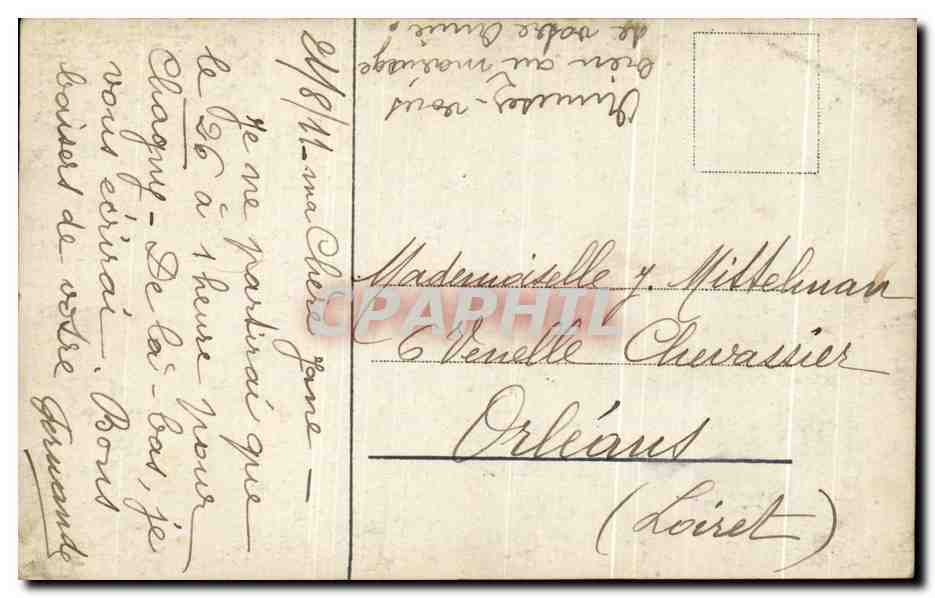 21/8/11 - ma Chère Jane -
Je ne partirai que
le 26 à 1 heure pour
Chagny - De là-bas, je
vous écrirai. Bons
baisers de votre Germande
Amusez-vous
bien au mariage
de votre Amie!
Mademoiselle J. Mittelman
6 Venelle Chevassier
Orléans
(Loiret)
CPAPHIL